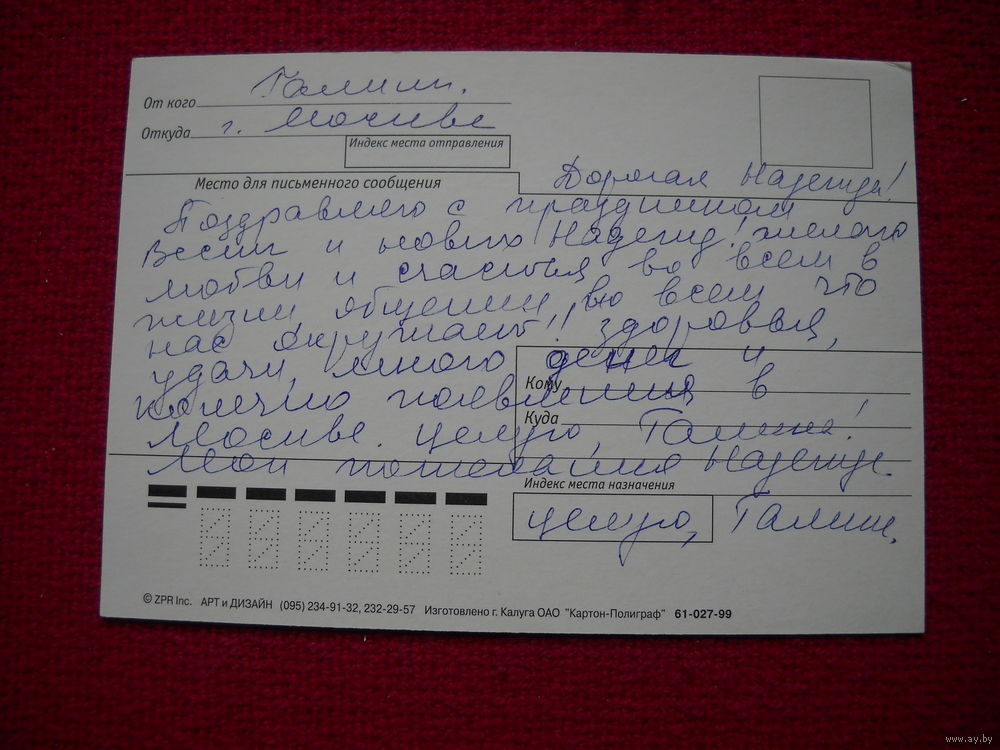 От кого Галины.
Откуда г. Москве
Индекс места отправления
Место для письменного сообщения
Дорогая Надежда!
Поздравляю с праздником
Весны и новых Надежд! желаю
любви и счастья во всем в
жизни общении, во всем что
нас окружает!! здоровья,
удачи, много денег и
Кому
конечно появления в
Куда
Москве. целую, Галина!
Мои пожелания Надежде.
Индекс места назначения
целую, Галина.
© ZPR Inc. АРТ и ДИЗАЙН (095) 234-91-32, 232-29-57 Изготовлено г. Калуга ОАО "Картон-Полиграф" 61-027-99
www.ay.by